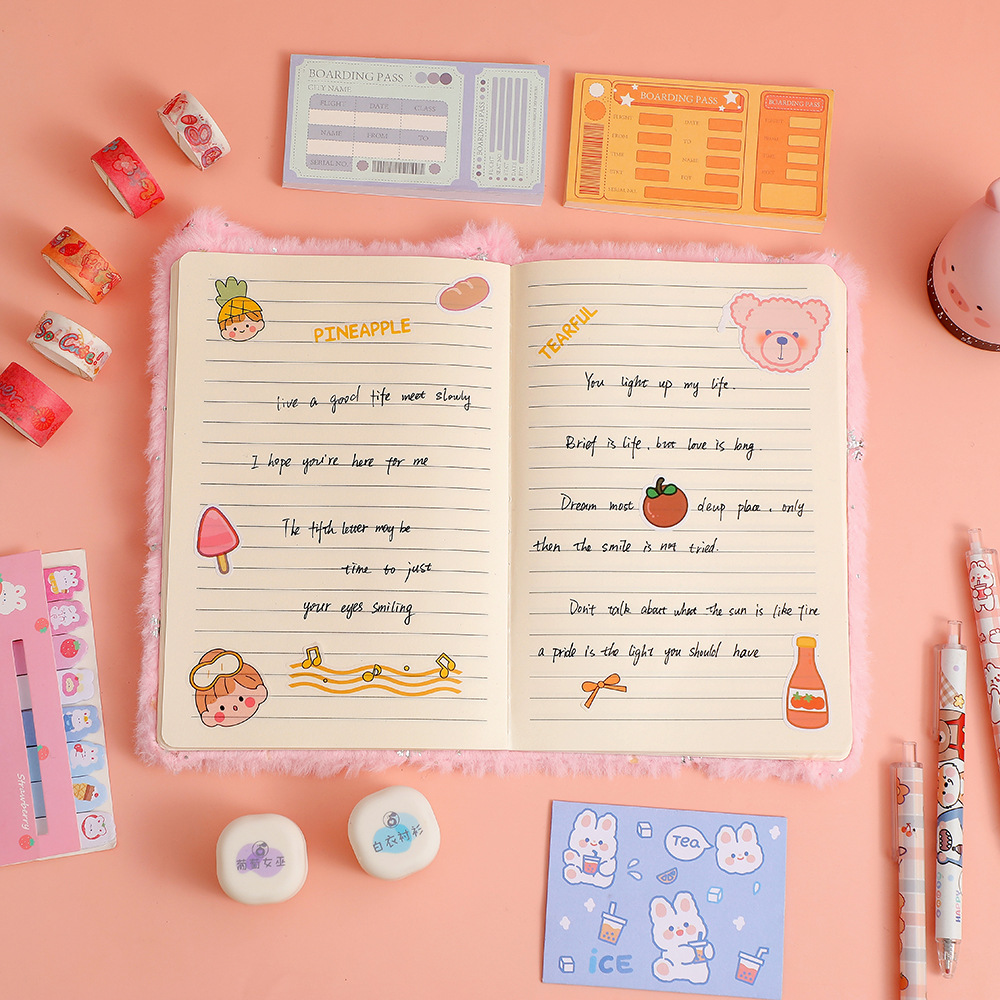 BOARDING PASS
CITY NAME
FLIGHT DATE CLASS
NAME FROM TO
SERIAL NO.
BOARDING PASS
BOARDING PASS
FLIGHT DATE
FROM TO
TIME NAME
SEAT
SERIAL NO.
BOARDING PASS
So Cute!
PINEAPPLE
live a good tife meet slowly
I hope you're here for me
The fifth letter may be
time to just
your eyes smiling
TEARFUL
You light up my life.
Brief is life, but love is long.
Dream most deup place, only
then the smile is not tried.
Don't talk about what the sun is like fire
a pride is the light you should have
Strawberry
葡萄女巫
白衣衬衫
Tea
iCE
HAPPY